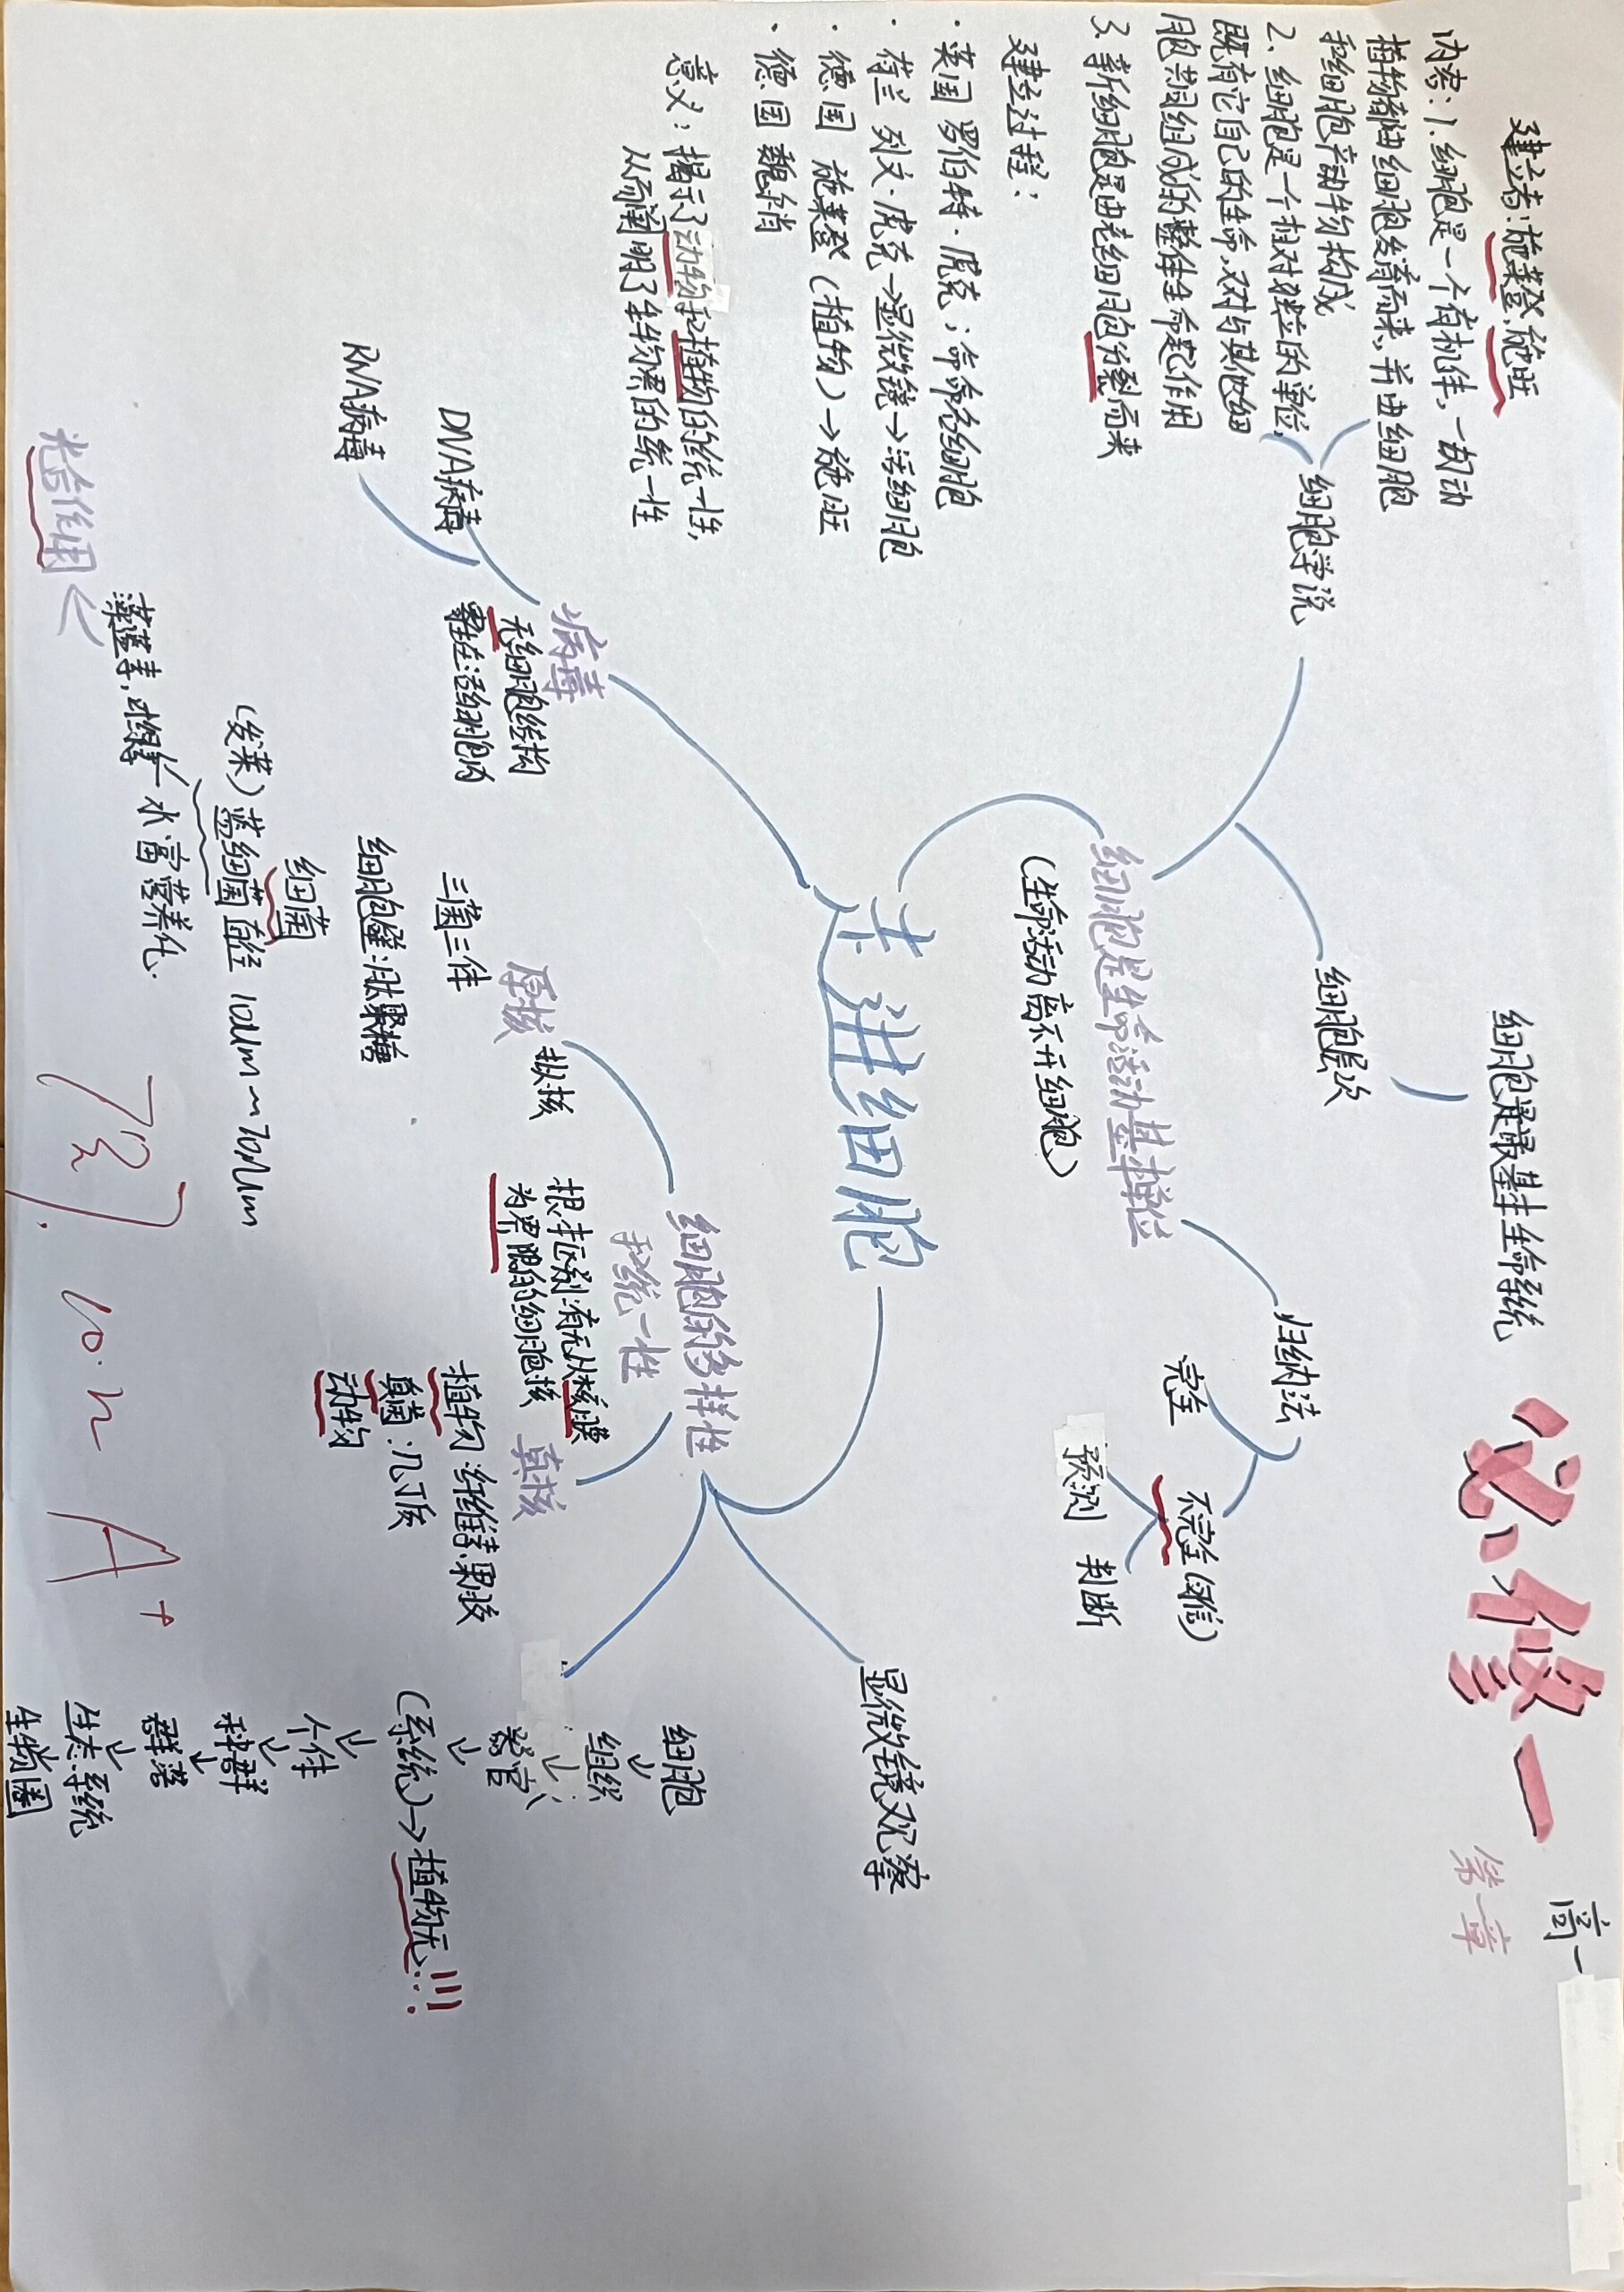 必修一
高一
第一章
建立者:施莱登,施旺
内容:1.细胞是一个有机体,一切动
植物都由细胞发育而来,并由细胞
和细胞产动物构成
2、细胞是一个相对独立的单位,
既有它自己的生命,又对与其他细
胞共同组成的整体生命起作用
3、新细胞是由老细胞分裂而来
建立过程:
·英国 罗伯特·虎克;命命名细胞
·荷兰 列文·虎克→显微镜→活细胞
·德国 施莱登(植物)→施旺
·德国 魏尔肖
意义:揭示了动物和植物的统一性,
从而阐明了生物界的统一性
细胞学说
细胞层次
细胞是最基本生命系统
细胞是生命活动基本单位
(生命活动离不开细胞)
归纳法
完全
不完全(可信)
预测
判断
走进细胞
病毒
无细胞结构
寄生在活细胞内
DNA病毒
RNA病毒
细胞的多样性
和统一性
根据区别:有无以核膜
为界限的细胞核
原核
拟核
三菌三体
细胞壁:肽聚糖
细菌
(发菜)蓝细菌 直径 10um~70um
藻蓝素,叶绿素
水富营养化.
光合作用
真核
植物:纤维素.果胶
真菌:几丁质
动物
显微镜观察
细胞
↓
组织
↓
器官
↓
(系统)→植物无!!!
↓
个体
↓
种群
↓
群落
↓
生态系统
↓
生物圈
10.12
A+